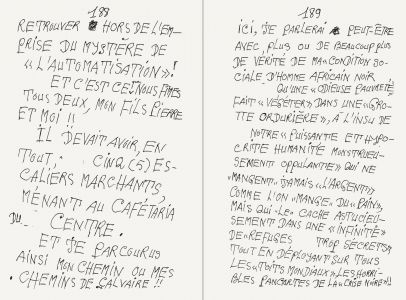 188
RETROUVER HORS DE L'EM-
PRISE DU MYSTÈRE DE
«L'AUTOMATISATION»!
ET C'EST CE NOUS FÎMES
TOUS DEUX, MON FILS PIERRE
ET MOI !!
IL DEVAIT AVOIR, EN
TOUT, CINQ (5) ES-
CALIERS MARCHANTS,
MENANT AU CAFÉTARIA
DU CENTRE.
ET JE PARCOURUS
AINSI MON CHEMIN OU MES
CHEMINS DE SALVAIRE !!
189
ICI, JE PARLERAI PEUT-ÊTRE
AVEC PLUS OU DE BEAUCOUP PLUS
DE VÉRITÉ DE MA CONDITION SO-
CIALE D'HOMME AFRICAIN NOIR
QU'UNE «ODIEUSE PAUVRETÉ
FAIT «VÉGÉTER» DANS UNE «GRO-
TTE ORDURIÈRE», À L'INSU DE
NOTRE «PUISSANTE ET HYPO-
CRITE HUMANITÉ MONSTRUEU-
SEMENT OPPULANTE» QUI NE
«MANGENT» JAMAIS «L'ARGENT»
COMME L'ON «MANGE» DU «PAIN»,
MAIS QUI «LE» CACHE ASTUCIEU-
SEMENT DANS UNE «INFINITÉ»
DE «REFUGES TROP SECRETS»
TOUT EN DÉPLOYANT SUR TOUS
LES «TOITS MONDIAUX» LES HORRI-
BLES PANCARTES DE LA «CRISE NOIRE»!